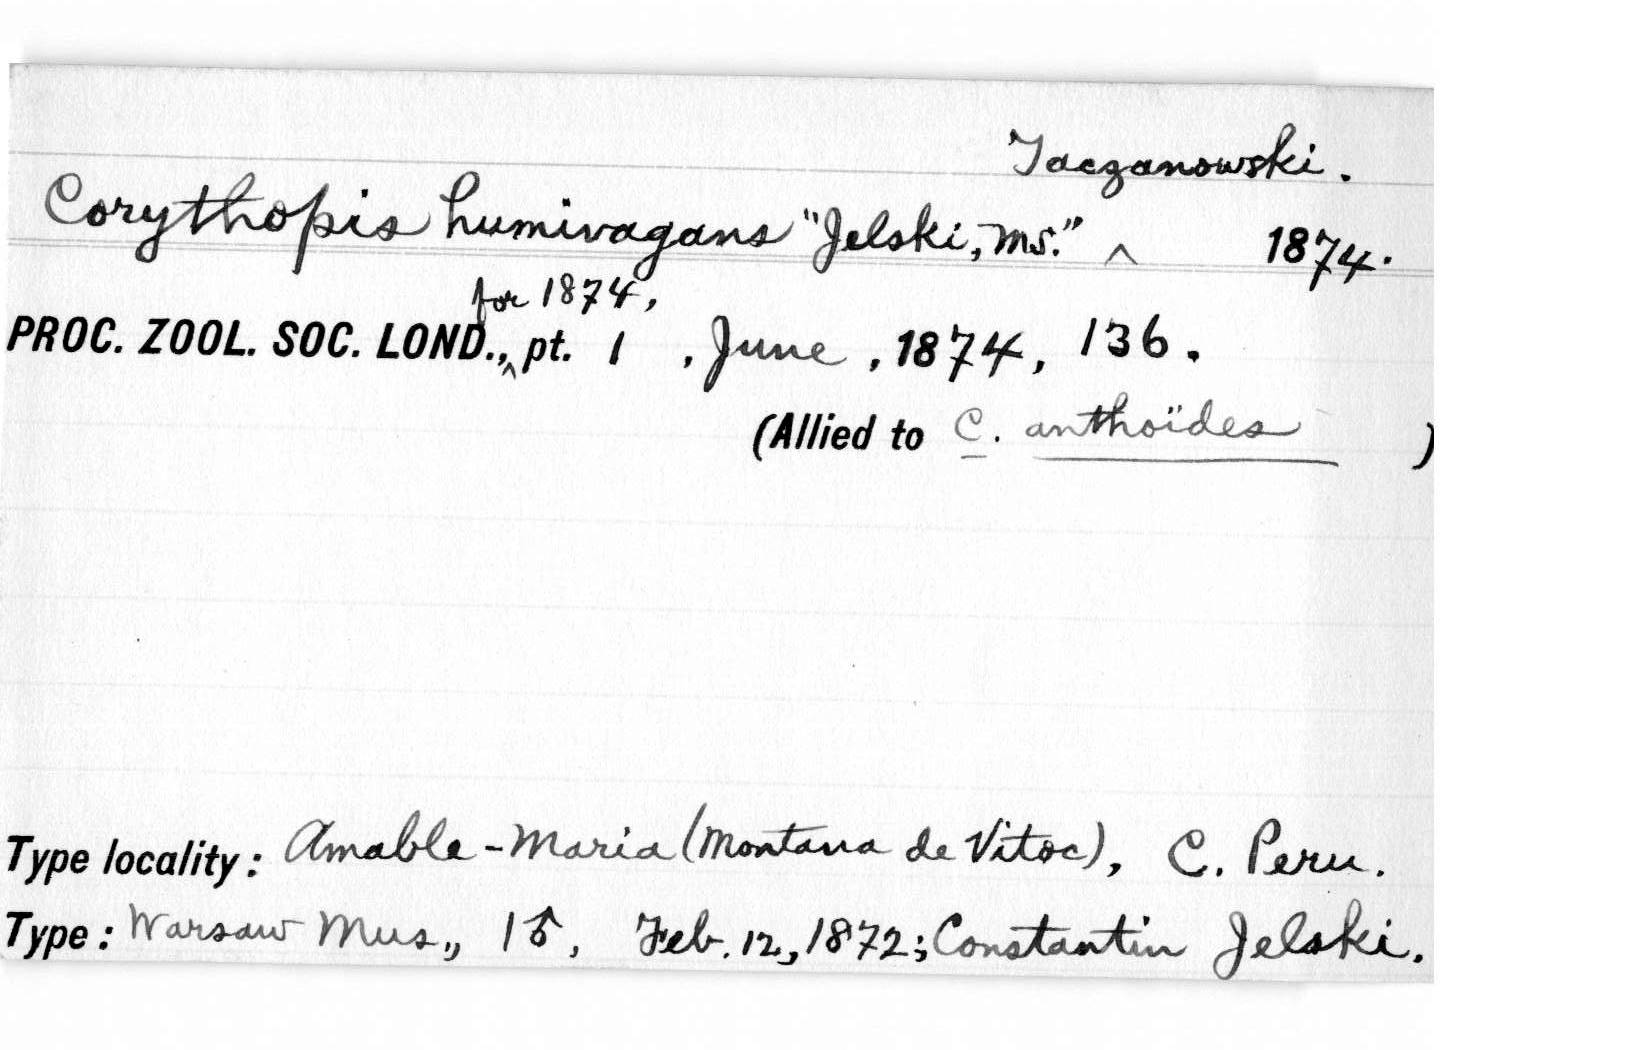 Taczanowski.
Corythopis humivagans "Jelski, MS." ^ 1874.
for 1874,
PROC. ZOOL. SOC. LOND.,^ pt. 1, June, 1874, 136.
(Allied to C. anthoïdes)
Type locality: Amable-Maria (Montana de Vitoc), C. Peru.
Type: Warsaw Mus., 1♂, Feb. 12, 1872; Constantin Jelski.